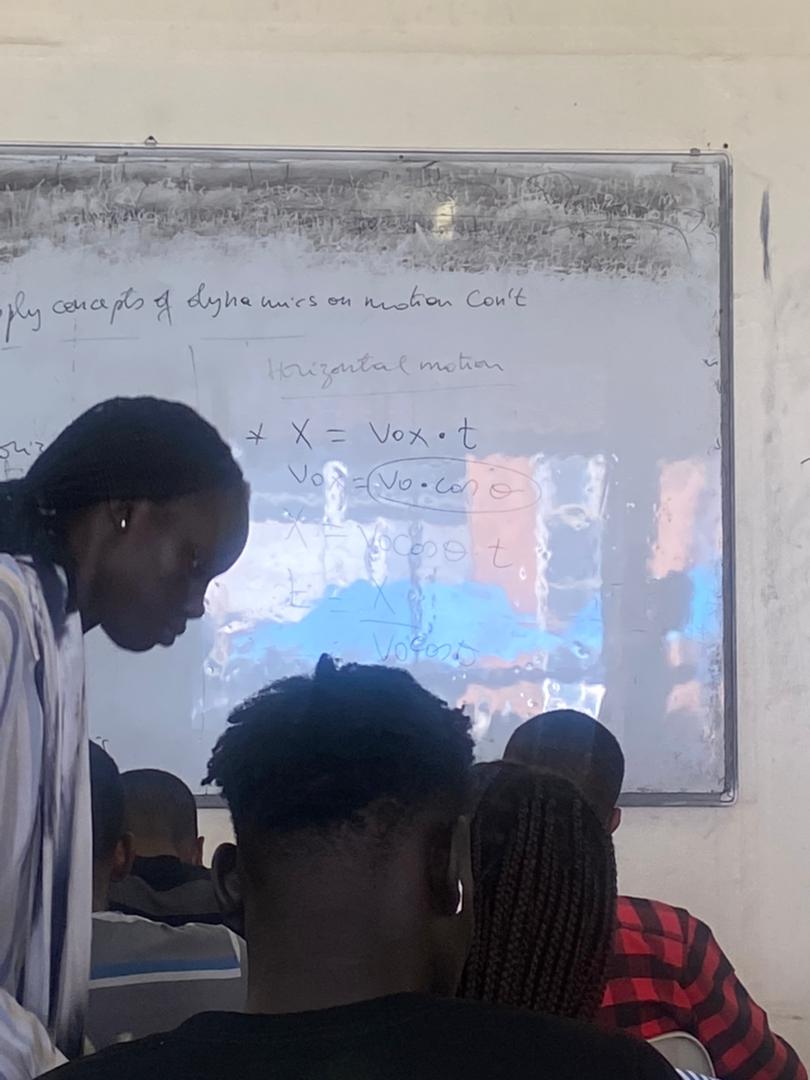 ply concepts of dynamics on motion Con't
Horizontal motion
* X = Vox • t
Vox = Vo • cos θ
X = Vocosθ t
t = X
Vocosθ